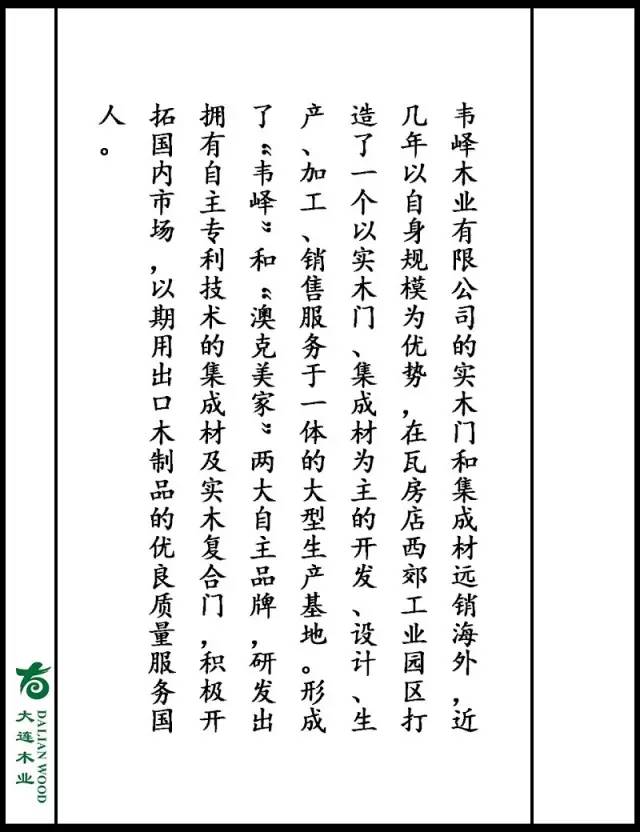 韦峄木业有限公司的实木门和集成材远销海外，近
几年以自身规模为优势，在瓦房店西郊工业园区打
造了一个以实木门、集成材为主的开发、设计、生
产、加工、销售服务于一体的大型生产基地。形成
了“韦峄”和“澳克美家”两大自主品牌，研发出
拥有自主专利技术的集成材及实木复合门，积极开
拓国内市场，以期用出口木制品的优良质量服务国
人。
DALIAN WOOD
大连木业